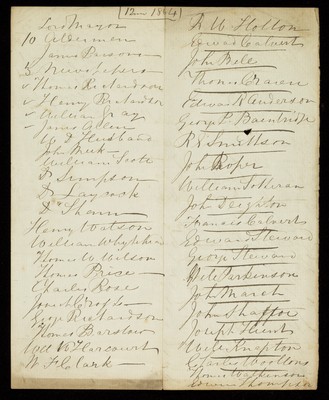 12 mo 1864
Lord Mayor
10 Aldermen
James Parsons
3 News Papers
Thomas Richardson
Henry Richardson
William Gray
James Allen
W D Husband
John Meek
William Scott
D Simpson
D Laycock
Dr Shann
Henry Watson
William Whytehead
Thomas W Wilson
Thomas Price
Charles Rose
George Richardson
Thomas Barstow
W F Clark
R W Hollon
Edward Calvert
John Bell
Thomas Craven
Edward R Anderson
George L Bainbridge
R F Smithson
John Roper
William Sotheran
John Leighton
Francis Calvert
Edward Steward
George Steward
John March
John Shaftoe
Joseph Hunt
William Knapton
Charles
Thomas
Edwin Thompson